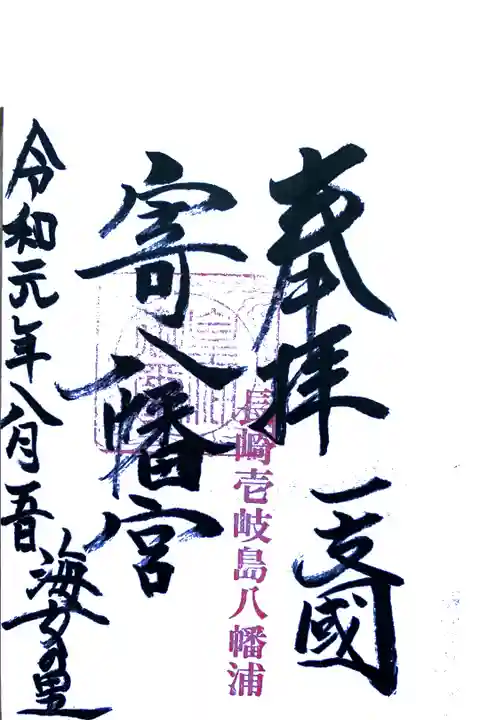 奉拝 一支國
長崎壱岐島八幡浦
寄八幡宮
令和元年八月一五日 海女の里